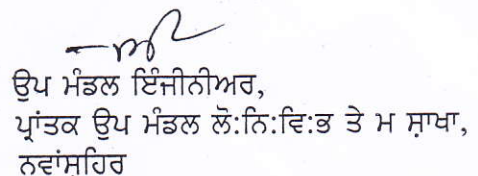 ਉਪ ਮੰਡਲ ਇੰਜੀਨੀਅਰ,
ਪ੍ਰਾਂਤਕ ਉਪ ਮੰਡਲ ਲੋ:ਨਿ:ਵਿ:ਭ ਤੇ ਮ ਸ਼ਾਖਾ,
ਨਵਾਂਸ਼ਹਿਰ